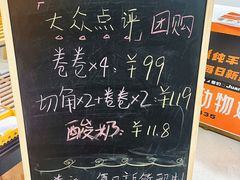 大众点评 团购
卷卷×4：¥99
切角×2+卷卷×2：¥119
酸奶：¥11.8
纯羊
每日新
动物